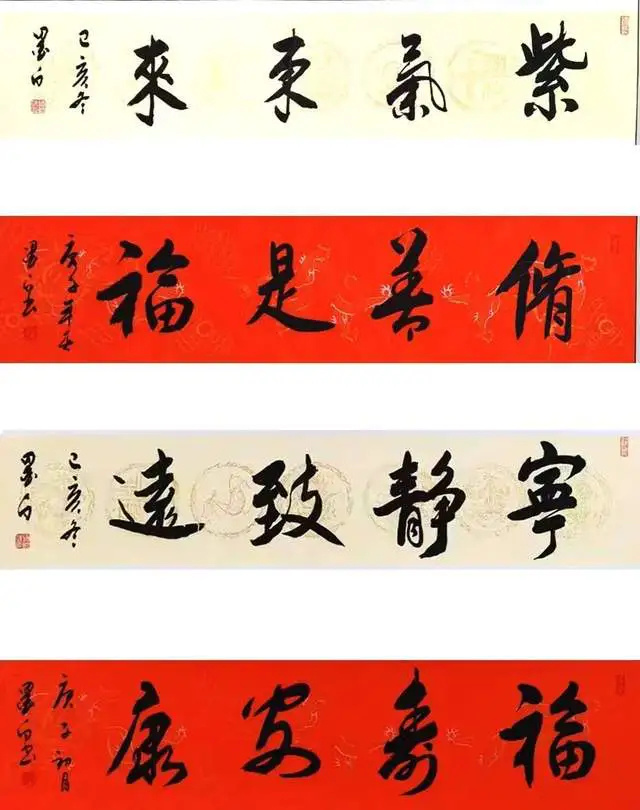 紫氣東來
己亥冬
墨白
脩善是福
庚子年春
墨白書
寧靜致遠
己亥冬
墨白
福壽安康
庚子初月
墨白書